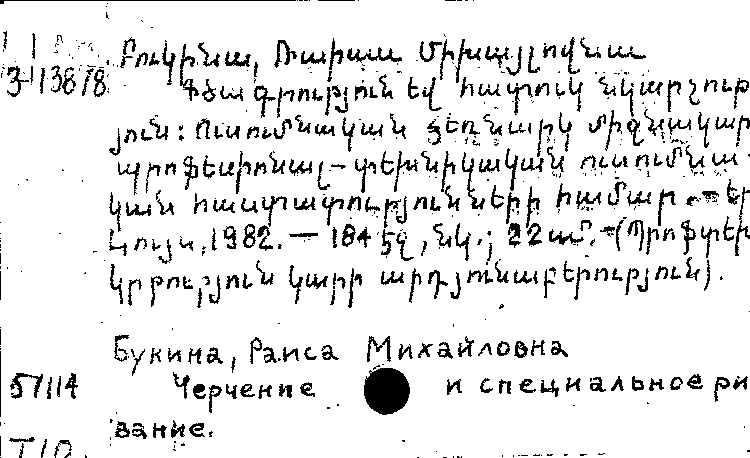 Բուկինա, Ռաիսա Միխայլովնա
3-113878 Գծագրություն եվ հատուկ նկարչութ
յուն: Ուսումնական ձեռնարկ միջնակար
պրոֆեսիոնալ-տեխնիկական ուսումնա-
կան հաստատությունների համար.-Եր
Լույս,1982.-184 էջ, նկ.; 22սմ.-(Պրոֆտեխ
կրթություն կարի արդյունաբերություն).
Букина, Раиса Михайловна
57114 Черчение и специальное ри
вание.